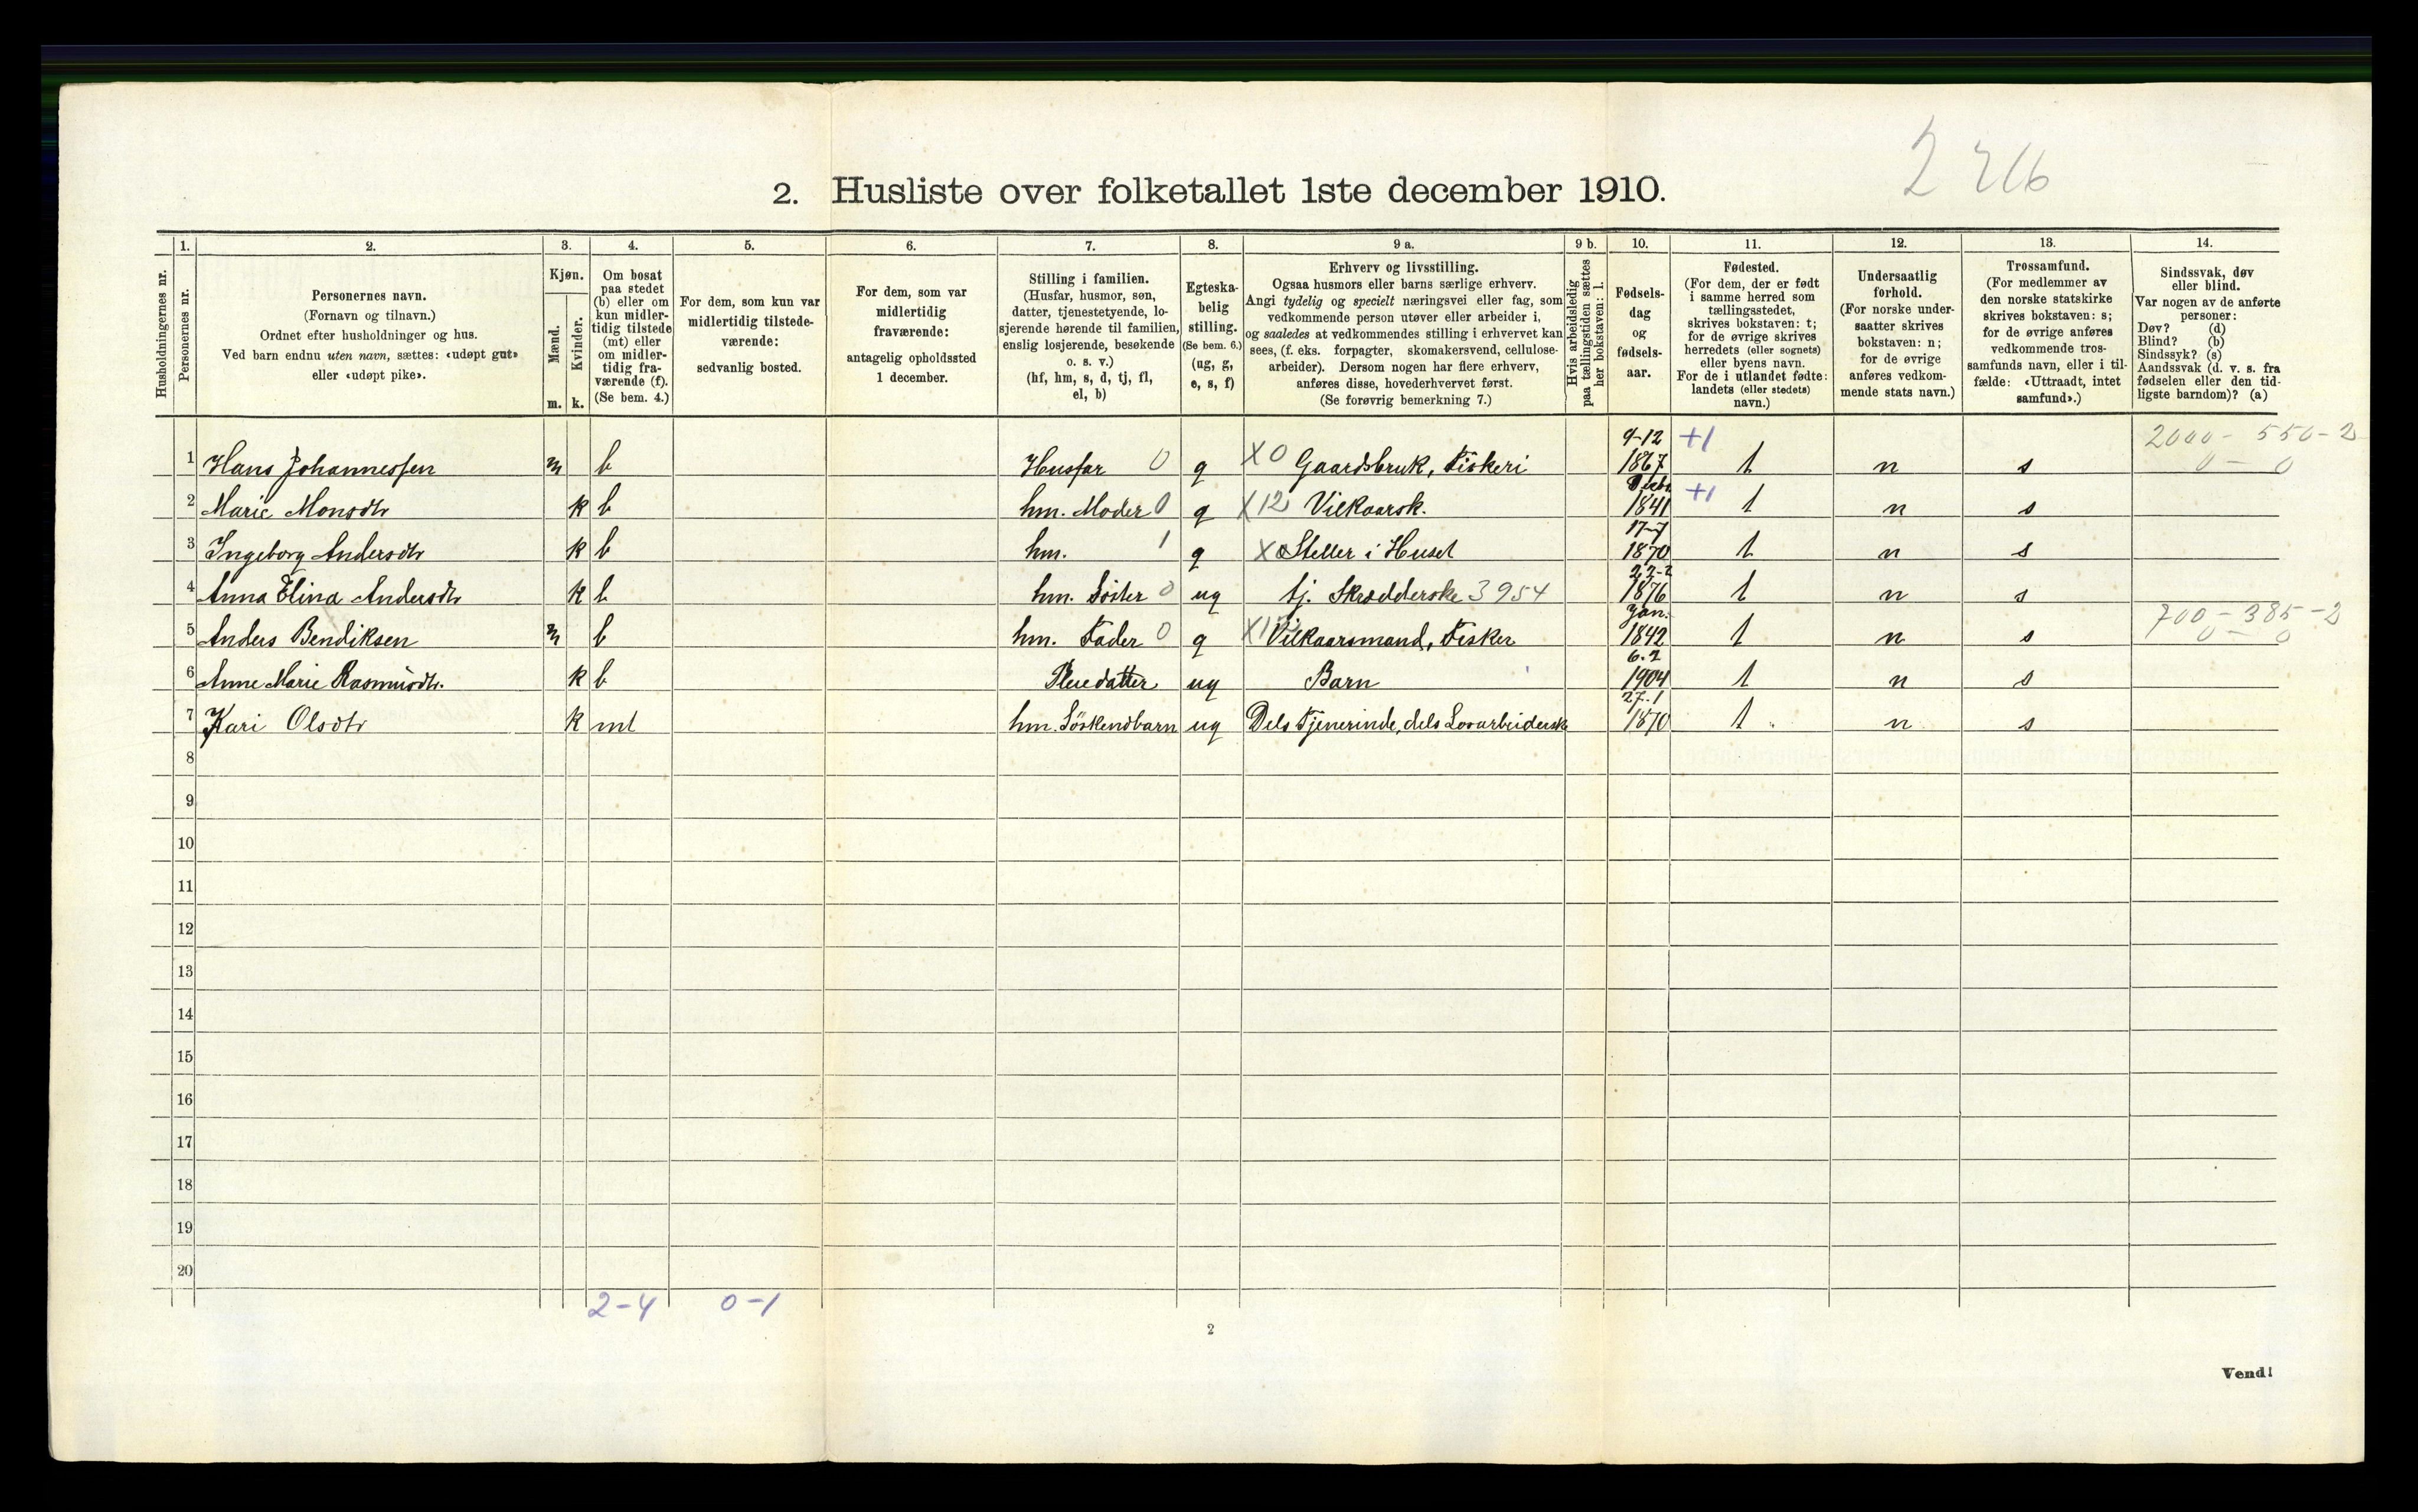 2 2 16
2. Husliste over folketallet 1ste december 1910.
Husholdningernes nr.
1. Personernes nr.
2.
Personernes navn.
(Fornavn og tilnavn.)
Ordnet efter husholdninger og hus.
Ved barn endnu uten navn, sættes: «udøpt gut»
eller «udøpt pike».
3.
Kjøn.
Mænd. Kvinder.
m. k.
4.
Om bosat
paa stedet
(b) eller om
kun midler-
tidig tilstede
(mt) eller
om midler-
tidig fra-
værende (f).
(Se bem. 4.)
5.
For dem, som kun var
midlertidig tilstede-
værende:
sedvanlig bosted.
6.
For dem, som var
midlertidig
fraværende:
antagelig opholdssted
1 december.
7.
Stilling i familien.
(Husfar, husmor, søn,
datter, tjenestetyende, lo-
sjerende hørende til familien,
enslig losjerende, besøkende
o. s. v.)
(hf, hm, s, d, tj, fl,
el, b)
8.
Egteska-
belig
stilling.
(Se bem. 6.)
(ug, g,
e, s, f)
9 a.
Erhverv og livsstilling.
Ogsaa husmors eller barns særlige erhverv.
Angi tydelig og specielt næringsvei eller fag, som
vedkommende person utøver eller arbeider i,
og saaledes at vedkommendes stilling i erhvervet kan
sees, (f. eks. forpagter, skomakersvend, cellulose-
arbeider). Dersom nogen har flere erhverv,
anføres disse, hovederhvervet først.
(Se forøvrig bemerkning 7.)
9 b.
Hvis arbeidsledig
paa tællingstiden sættes
her bokstaven: l.
10.
Fødsels-
dag
og
fødsels-
aar.
11.
Fødested.
(For dem, der er født
i samme herred som
tællingsstedet,
skrives bokstaven: t;
for de øvrige skrives
herredets (eller sognets)
eller byens navn.
For de i utlandet fødte:
landets (eller stedets)
navn.)
12.
Undersaatlig
forhold.
(For norske under-
saatter skrives
bokstaven: n;
for de øvrige
anføres vedkom-
mende stats navn.)
13.
Trossamfund.
(For medlemmer av
den norske statskirke
skrives bokstaven: s;
for de øvrige anføres
vedkommende tros-
samfunds navn, eller i til-
fælde: «Uttraadt, intet
samfund».)
14.
Sindssvak, døv
eller blind.
Var nogen av de anførte
personer:
Døv? (d)
Blind? (b)
Sindssyk? (s)
Aandssvak (d. v. s. fra
fødselen eller den tid-
ligste barndom)? (a)
1 Hans Johannessen m b Husfar 0 g X0 Gaardsbruk, Fiskeri 9-12 1867 +1 t n s 2000 - 550 - 2 0 - 0
2 Marie Monsdtr k b hm. Moder 0 g X12 Vilkaarsk. 1841 +1 t n s
3 Ingeborg Andersdtr k b hm. 1 g X Steller i Huset 17-7 1870 t n s
4 Anna Elina Andersdtr k b hm. Søster 0 ug tj. Skrædderske 3954 22-2 1876 t n s
5 Anders Bendiksen m b hm. Fader 0 g X12 Vilkaarsmand, Fisker Jan. 1842 t n s 700 - 385 - 2 0 - 0
6 Anne Marie Rasmusdtr. k b Pleiedatter ug Barn 6.2 1904 t n s
7 Kari Olsdtr k mt hm. Söskendbarn ug Dels Tjenerinde, dels Losarbeiderske 27.1 1870 t n s
8
9
10
11
12
13
14
15
16
17
18
19
20
2-4 0-1
2
Vend!